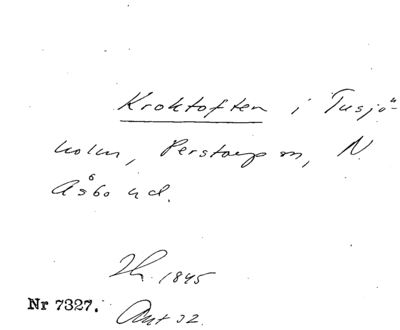 Kroktoften i Tusjö-
holm, Perstorp sn, N.
Åsbo hd.
Lh. 1845
Nr 7327. Akt 32.